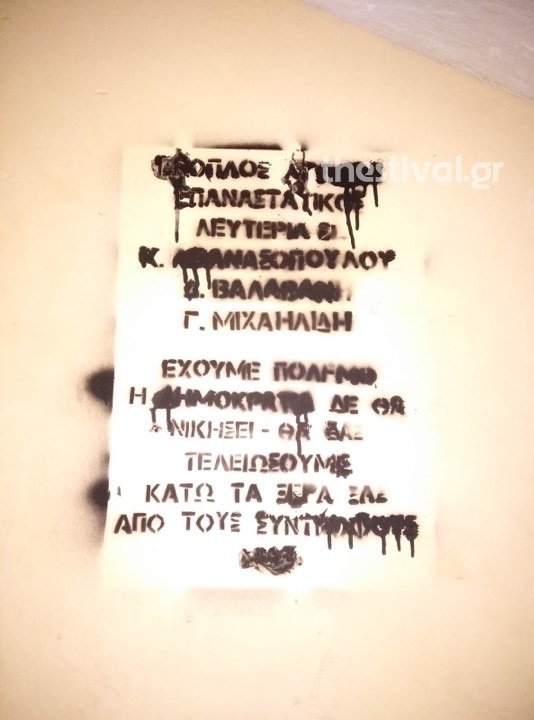 thestival.gr
ΕΝΟΠΛΟΣ
ΕΠΑΝΑΣΤΑΤΙΚΟΣ
ΛΕΥΤΕΡΙΑ Σ
Κ. ΑΘΑΝΑΣΟΠΟΥΛΟΥ
Β. ΒΑΛΑΒΑΝΗ
Γ. ΜΙΧΑΗΛΙΔΗ
ΕΧΟΥΜΕ ΠΟΛΕΜΟ
Η ΔΗΜΟΚΡΑΤΙΑ ΔΕ ΘΑ
ΝΙΚΗΣΕΙ - ΘΑ ΣΑΣ
ΤΕΛΕΙΩΣΟΥΜΕ
ΚΑΤΩ ΤΑ ΞΕΡΑ ΣΑΣ
ΑΠΟ ΤΟΥΣ ΣΥΝΤΡΟΦΟΥΣ